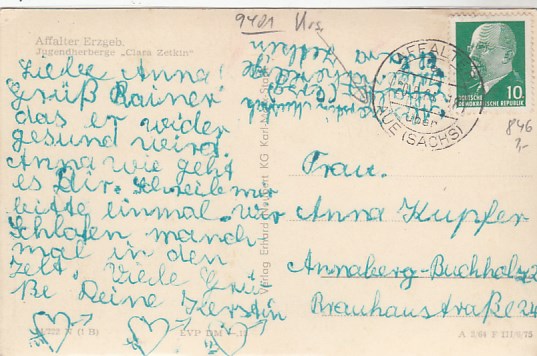 9401
Affalter Erzgeb.
Jugendherberge „Clara Zetkin"
Liebe Anna!
Grüß Rainer
das er wider
gesund wird.
Anna wie geht
es Dir. Schreibe mir
bitte einmal. Wir
schlafen manch
mal in den
Zelt. Viele Grü
ße Deine Kerstin
(1 B)
EVP DM
Verlag Erhard KG Karl-Marx-Stadt
AFFALTER
über
AUE (SACHS)
10
DEUTSCHE
DEMOKRATISCHE REPUBLIK
846
Frau.
Anna Kupfer
Annaberg-Buchholz 2
Brauhausstraße 24
A 5/64 F 131/6/75